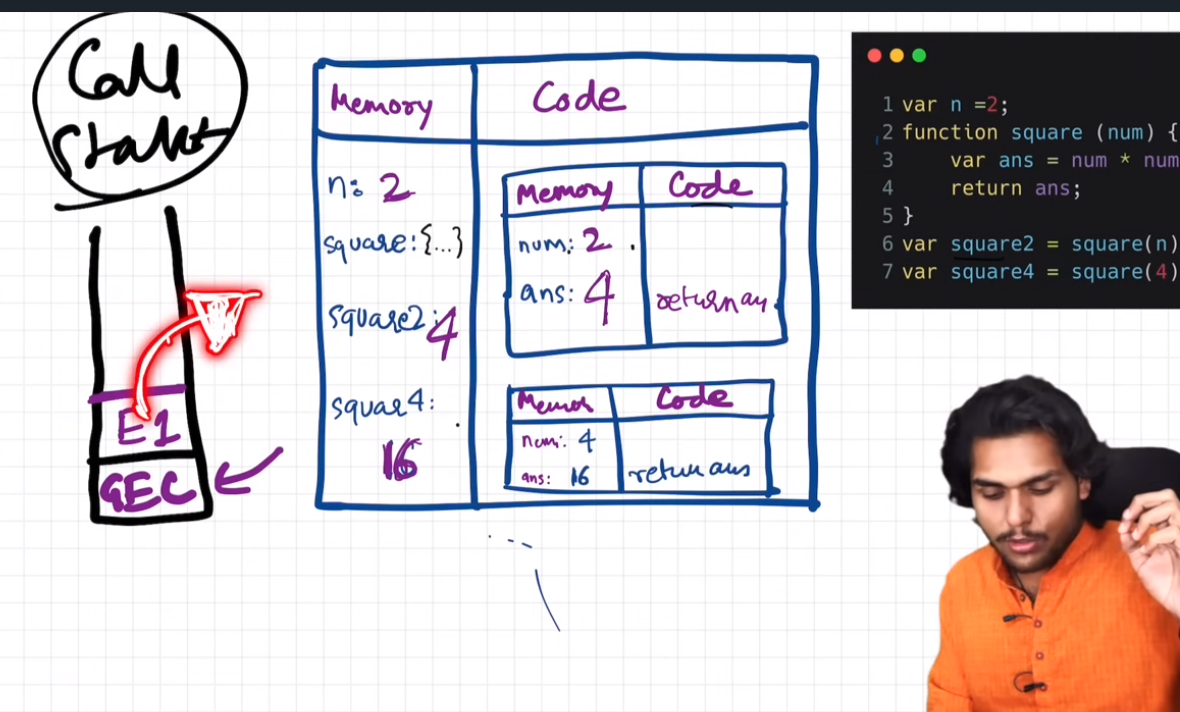 Call
Stakt
E1
GEC
Memory
Code
n: 2
square: {...}
square2: 4
squar4:
16
Memory
Code
num: 2
ans: 4
return an
Memor
Code
num: 4
ans: 16
return ans
1 var n =2;
2 function square (num) {
3 var ans = num * num
4 return ans;
5 }
6 var square2 = square(n)
7 var square4 = square(4)